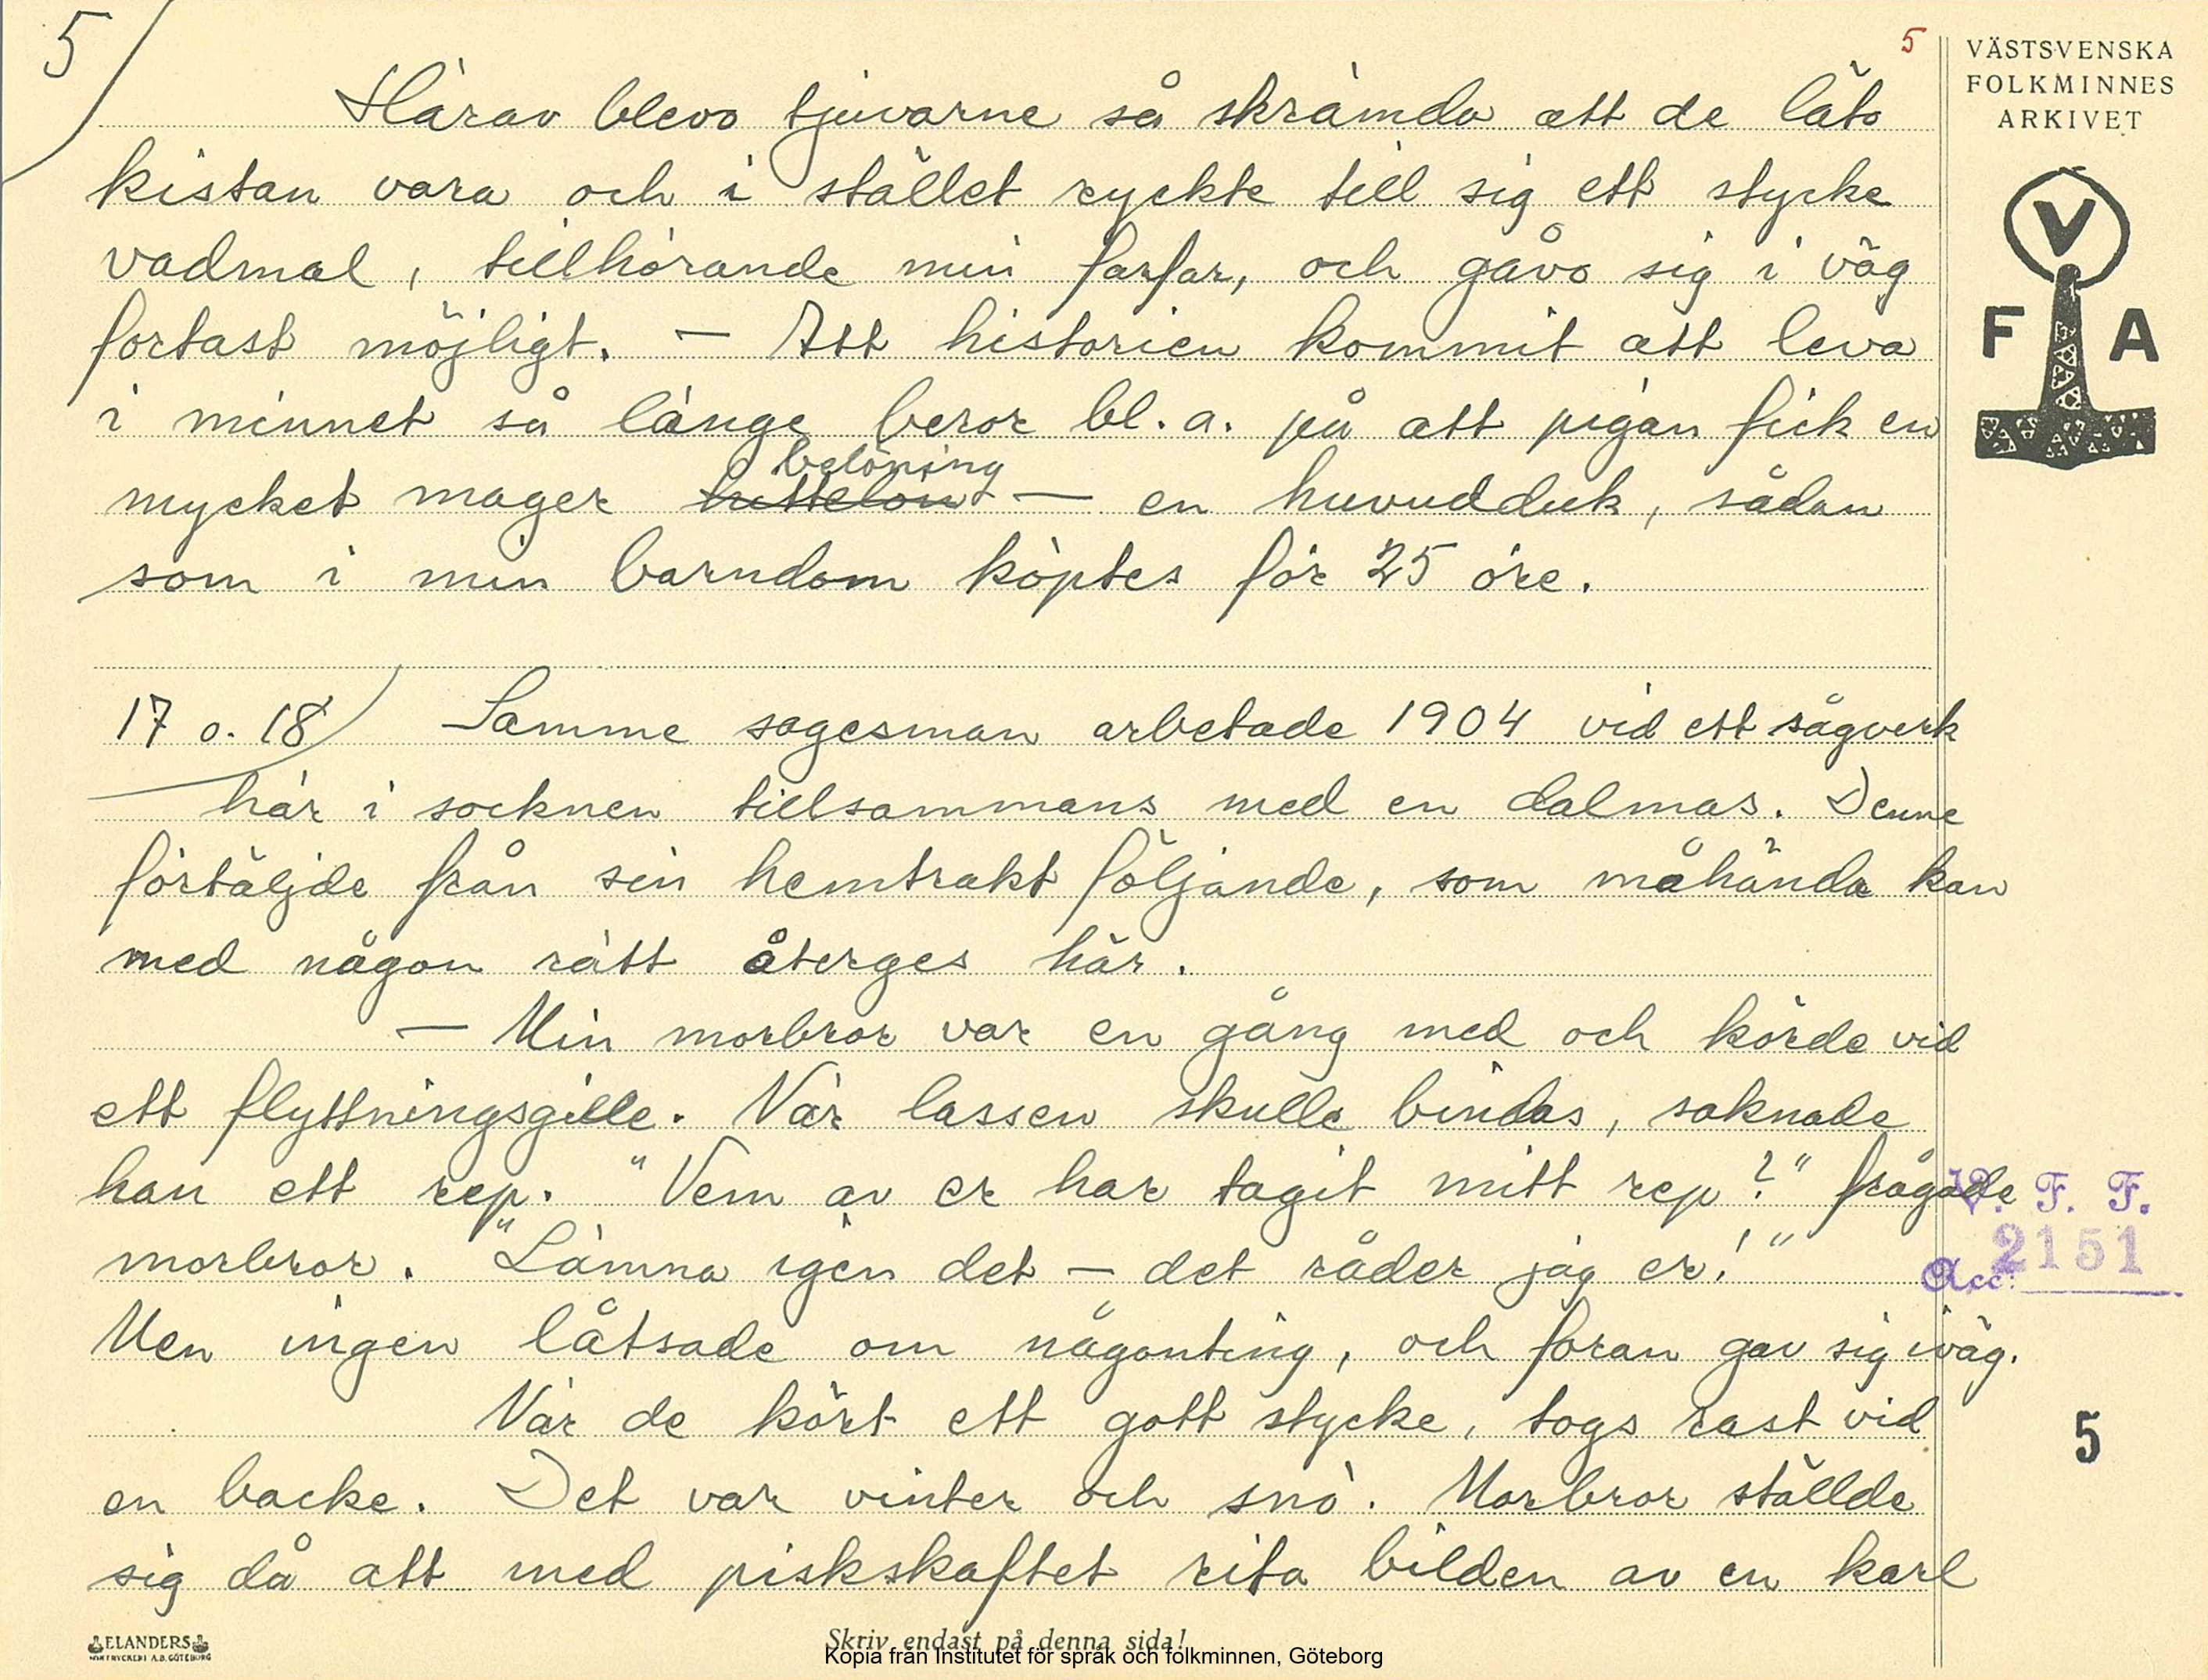 5
5
VÄSTSVENSKA
FOLKMINNES
ARKIVET
V
F A
Härav blevo tjuvarne så skrämda att de läto
kistan vara och i stället ryckte till sig ett stycke
vadmal, tillhörande min farfar, och gåvo sig i väg
fortast möjligt. — Att historien kommit att leva
i minnet så länge beror bl.a. på att pigan fick en
belöning
mycket mager hittelön — en huvudduk, sådan
som i min barndom köptes för 25 öre.
17 o. 18) Samme sagesman arbetade 1904 vid ett sågverk
här i socknen tillsammans med en dalmas. Denne
förtäljde från sin hemtrakt följande, som måhända kan
med någon rätt återges här.
— Min morbror var en gång med och körde vid
ett flyttningsgille. När lassen skulle bindas, saknade
han ett rep. "Vem av er har tagit mitt rep?" frågade
morbror. "Lämna igen det — det råder jag er!"
Men ingen låtsade om någonting, och foran gav sig iväg.
När de kört ett gott stycke, togs rast vid
en backe. Det var vinter och snö. Morbror ställde
sig då att med piskskaftet rita bilden av en karl
V. F. F.
Acc: 2151
5
ELANDERS
BOKTRYCKERI A.B. GÖTEBORG
Skriv endast på denna sida!
Kopia från Institutet för språk och folkminnen, Göteborg